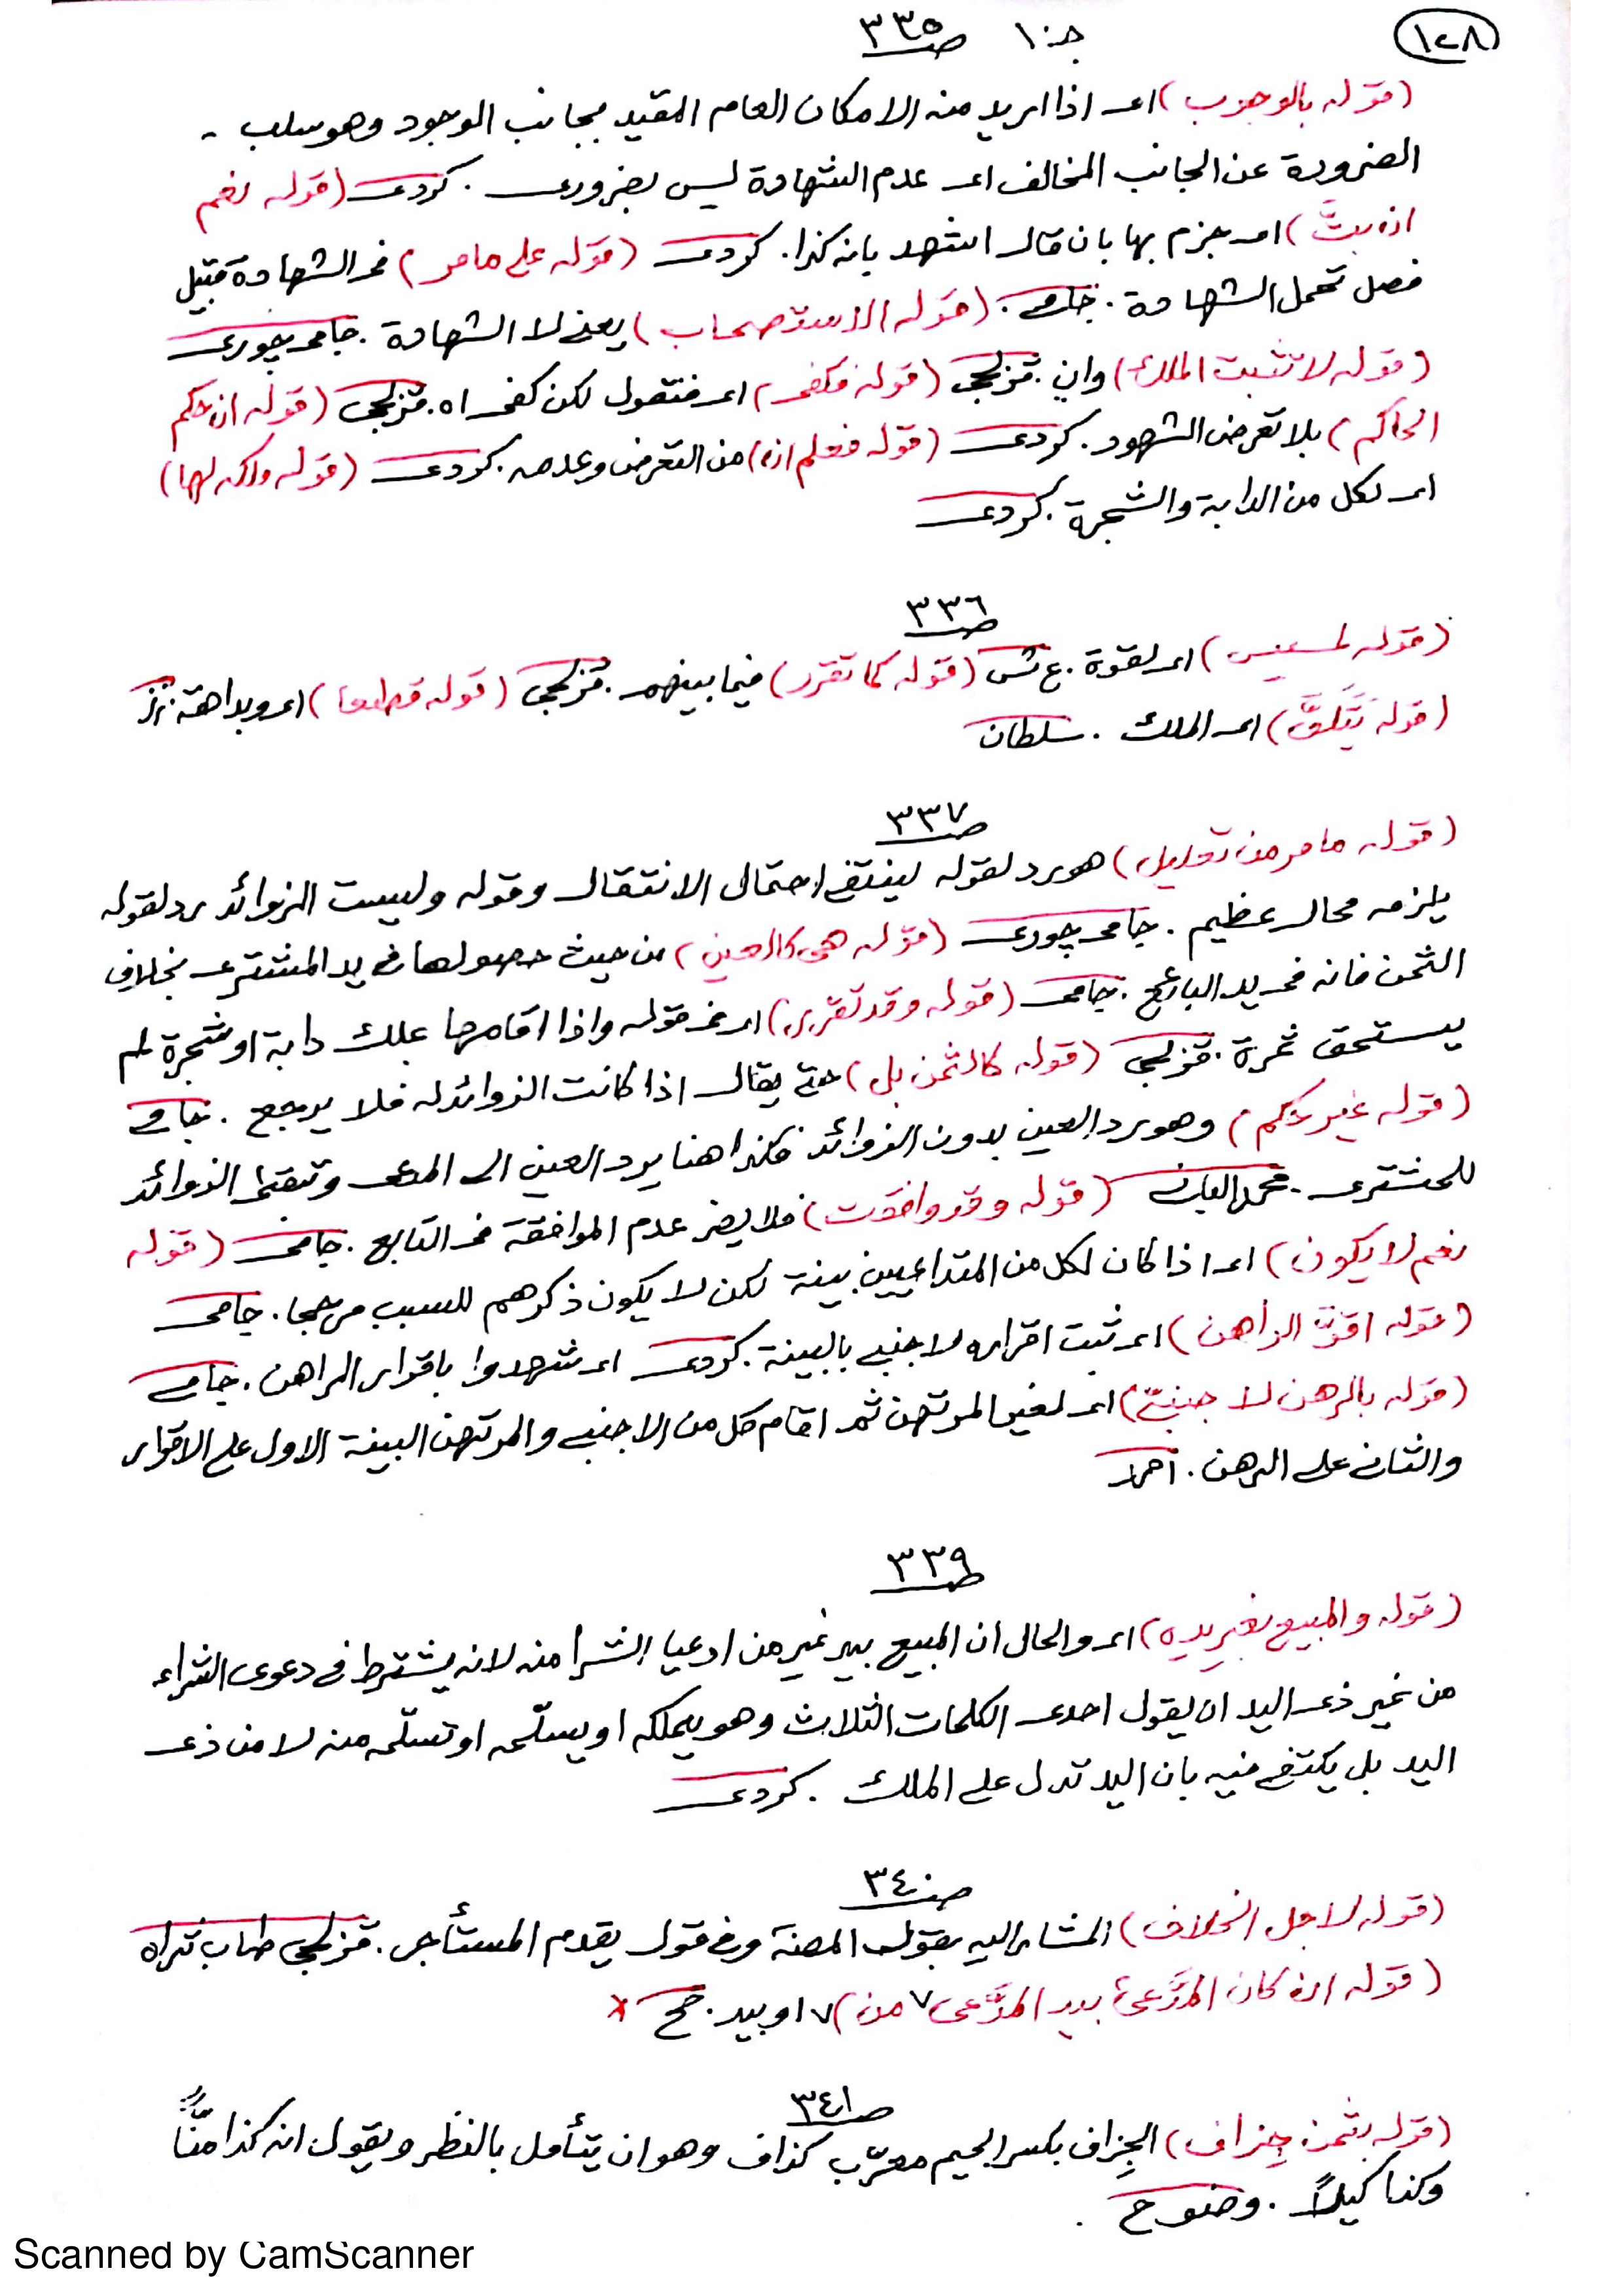 ١٢٨
جـ١٠ صـ٣٣٥
(قوله بالوجوب) اى اذا اريد منه الامكان العام المقيد بجانب الوجود وهو سلب -
الضرورة عن الجانب المخالف اى عدم الشهادة ليس بضرورى . كردى (قوله نعم
ان بتّ) اى جزم بها بان قال اشهد بانه كذا . كردى (قوله على ما مر) فى الشهادة قبيل
فصل تحمل الشهادة . (قوله الاستصحاب) يعنى لا الشهادة . جامى چورى
(قوله لا تثبت الملك) وان . قزلجى (قوله فكفى) اى فنقول لكن كفى اه . قزلجى (قوله ان حكم
الحاكم) بلا تعرض الشهود . كردى (قوله فعلم ان) من التعرض وعدمه . كردى (قوله ملكه لها)
اى لكل من الدابة والشجرة . كردى
صـ٣٣٦
(قوله لسنين) اى لقوة . ع ش (قوله كما تقرر) فيما بينهم . قزلجى (قوله قطعا) اى وبداهة .
(قوله يَتَلَقَّ) اى الملك . سلطان
صـ٣٣٧
(قوله ما مر من تعليل) هو رد لقوله لينتفى احتمال الانتقال وقوله وليست الزوائد رد لقوله
يلزمه محال عظيم . جامى چورى (قوله هى كالعين) من حيث حصولها فى يد المشترى بخلاف
الثمن فانه فى يد البائع . جامى (قوله وقد تقرر) اى فى قوله واذا اقامها بملك دابة او شجرة لم
يستحق ثمرة . قزلجى (قوله كالثمن بل) حتى يقال اذا كانت الزوائد له فلا يرجع . جامى
(قوله غير حكم) وهو رد العين بدون الزوائد فكذا هنا يرد العين الى المدعى وتبقى الزوائد
للمشترى . (قوله وقد وافقت) فلا يضر عدم الموافقة فى التابع . جامى (قوله
نعم لا يكون) اى اذا كان لكل من المتداعيين بينة لكن لا يكون ذكرهم للسبب مرجحا . جامى
(قوله اقرّ الراهن) اى ثبت اقراره لاجنبى بالبينة . كردى اى شهدوا باقرار الراهن . جامى
(قوله بالرهن لاجنبىّ) اى لغير المرتهن ثم اقام كل من الاجنبى والمرتهن البينة الاول على الاقرار
والثانى على الرهن . احمد
صـ٣٣٩
(قوله والمبيع بغير يده) اى والحال ان المبيع بيد غير من ادعيا الشرا منه لانه يشترط فى دعوى الشراء
من غير ذى اليد ان يقول احدى الكلمات الثلاث وهو يملكه او يسلّمه او تسلّمه منه لا من ذى
اليد بل يكتفى فيه بان اليد تدل على الملك . كردى
صـ٣٤٠
(قوله لاجل الخلاف) المشار اليه بقول المصنف وفى قول يقدم المستأجر . قزلجى طاب ثراه
(قوله ان كان المدَّعى بيد المدَّعى ٧ من) ٧ او بيد . صح *
صـ٣٤١
(قوله بثمن جِزاف) الجِزاف بكسر الجيم معرّب كذاف وهو ان يتأمل بالنظر ويقول انه كذا منًّا
وكذا كيلاً . وضوح .
Scanned by CamScanner